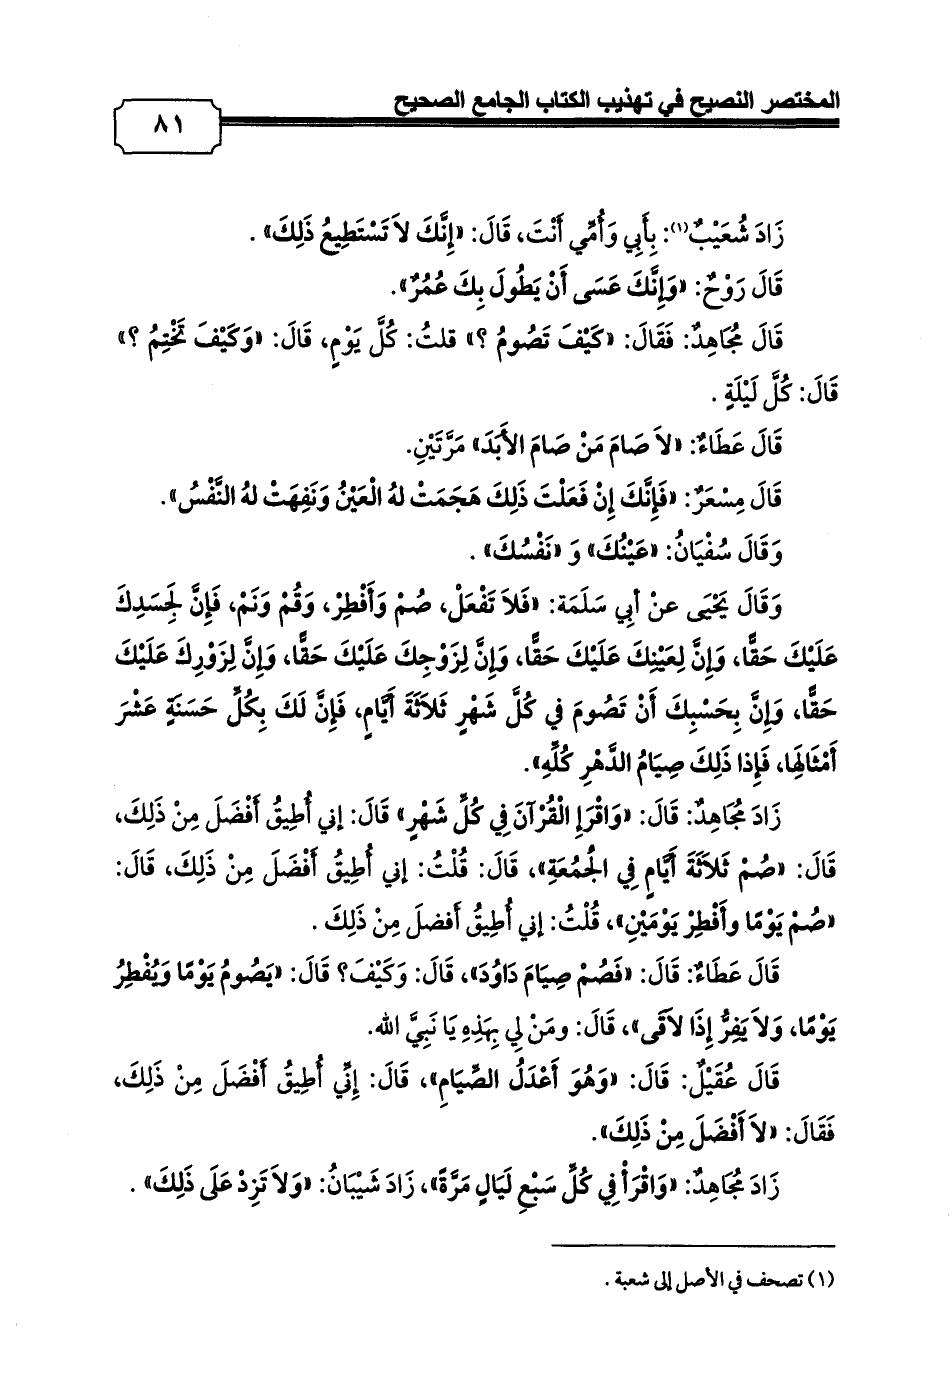 المختصر النصيح في تهذيب الكتاب الجامع الصحيح
٨١
زَادَ شُعَيْبٌ(١): بِأَبِي وَأُمِّي أَنْتَ، قَالَ: «إِنَّكَ لاَ تَسْتَطِيعُ ذَلِكَ» .
قَالَ رَوْحٌ: «وَإِنَّكَ عَسَى أَنْ يَطُولَ بِكَ عُمُرٌ».
قَالَ مُجَاهِدٌ: فَقَالَ: «كَيْفَ تَصُومُ ؟» قلتُ: كُلَّ يَوْمٍ، قَالَ: «وَكَيْفَ تَخْتِمُ ؟»
قَالَ: كُلَّ لَيْلَةٍ .
قَالَ عَطَاءٌ: «لاَ صَامَ مَنْ صَامَ الأَبَدَ» مَرَّتَيْنِ.
قَالَ مِسْعَرٌ: «فَإِنَّكَ إِنْ فَعَلْتَ ذَلِكَ هَجَمَتْ لهُ الْعَيْنُ وَنَفِهَتْ لهُ النَّفْسُ».
وَقَالَ سُفْيَانُ: «عَيْنُكَ» وَ «نَفْسُكَ» .
وَقَالَ يَحْيَى عنْ أبي سَلَمَة: «فَلاَ تَفْعَلْ، صُمْ وَأَفْطِرْ، وَقُمْ وَنَمْ، فَإِنَّ لِجَسَدِكَ
عَلَيْكَ حَقًّا، وَإِنَّ لِعَيْنِكَ عَلَيْكَ حَقًّا، وَإِنَّ لِزَوْجِكَ عَلَيْكَ حَقًّا، وَإِنَّ لِزَوْرِكَ عَلَيْكَ
حَقًّا، وَإِنَّ بِحَسْبِكَ أَنْ تَصُومَ في كُلَّ شَهْرٍ ثَلاَثَةَ أَيَّامٍ، فَإِنَّ لَكَ بِكُلِّ حَسَنَةٍ عَشْرَ
أَمْثَالِهَا، فَإِذا ذَلِكَ صِيَامُ الدَّهْرِ كُلِّهِ».
زَادَ مُجَاهِدٌ: قَالَ: «وَاقْرَإِ الْقُرْآنَ فِي كُلِّ شَهْرٍ» قَالَ: إني أُطِيقُ أَفْضَلَ مِنْ ذَلِكَ،
قَالَ: «صُمْ ثَلاَثَةَ أَيَّامٍ فِي الْجُمُعَةِ»، قَالَ: قُلْتُ: إني أُطِيقُ أَفْضَلَ مِنْ ذَلِكَ، قَالَ:
«صُمْ يَوْمًا وأَفْطِرْ يَوْمَيْنِ»، قُلْتُ: إني أُطِيقُ أَفضلَ مِنْ ذَلِكَ .
قَالَ عَطَاءٌ: قَالَ: «فَصُمْ صِيَامَ دَاوُدَ»، قَالَ: وَكَيْفَ؟ قَالَ: «يَصُومُ يَوْمًا وَيُفْطِرُ
يَوْمًا، وَلاَ يَفِرُّ إِذَا لاَقَى»، قَالَ: ومَنْ لي بِهَذِهِ يَا نَبِيَّ الله.
قَالَ عُقَيْلٌ: قَالَ: «وَهُوَ أَعْدَلُ الصِّيَامِ»، قَالَ: إِنِّي أُطِيقُ أَفْضَلَ مِنْ ذَلِكَ،
فَقَالَ: «لاَ أَفْضَلَ مِنْ ذَلِكَ».
زَادَ مُجَاهِدٌ: «وَاقْرَأْ فِي كُلِّ سَبْعِ لَيَالٍ مَرَّةً»، زَادَ شَيْبَانُ: «وَلاَ تَزِدْ عَلَى ذَلِكَ» .
(١) تصحف في الأصل إلى شعبة .